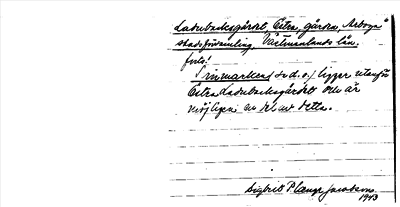 Ladubacksgärdet Östra, gården, Arboga
stadsförsamling Västmanlands län.
fulo!
Prinmarken (se d.o.) ligger utanför
Östra Ladubacksgärdet och är
möjligen en del av detta.
Sigfrid P. Lange Jacobson
1953